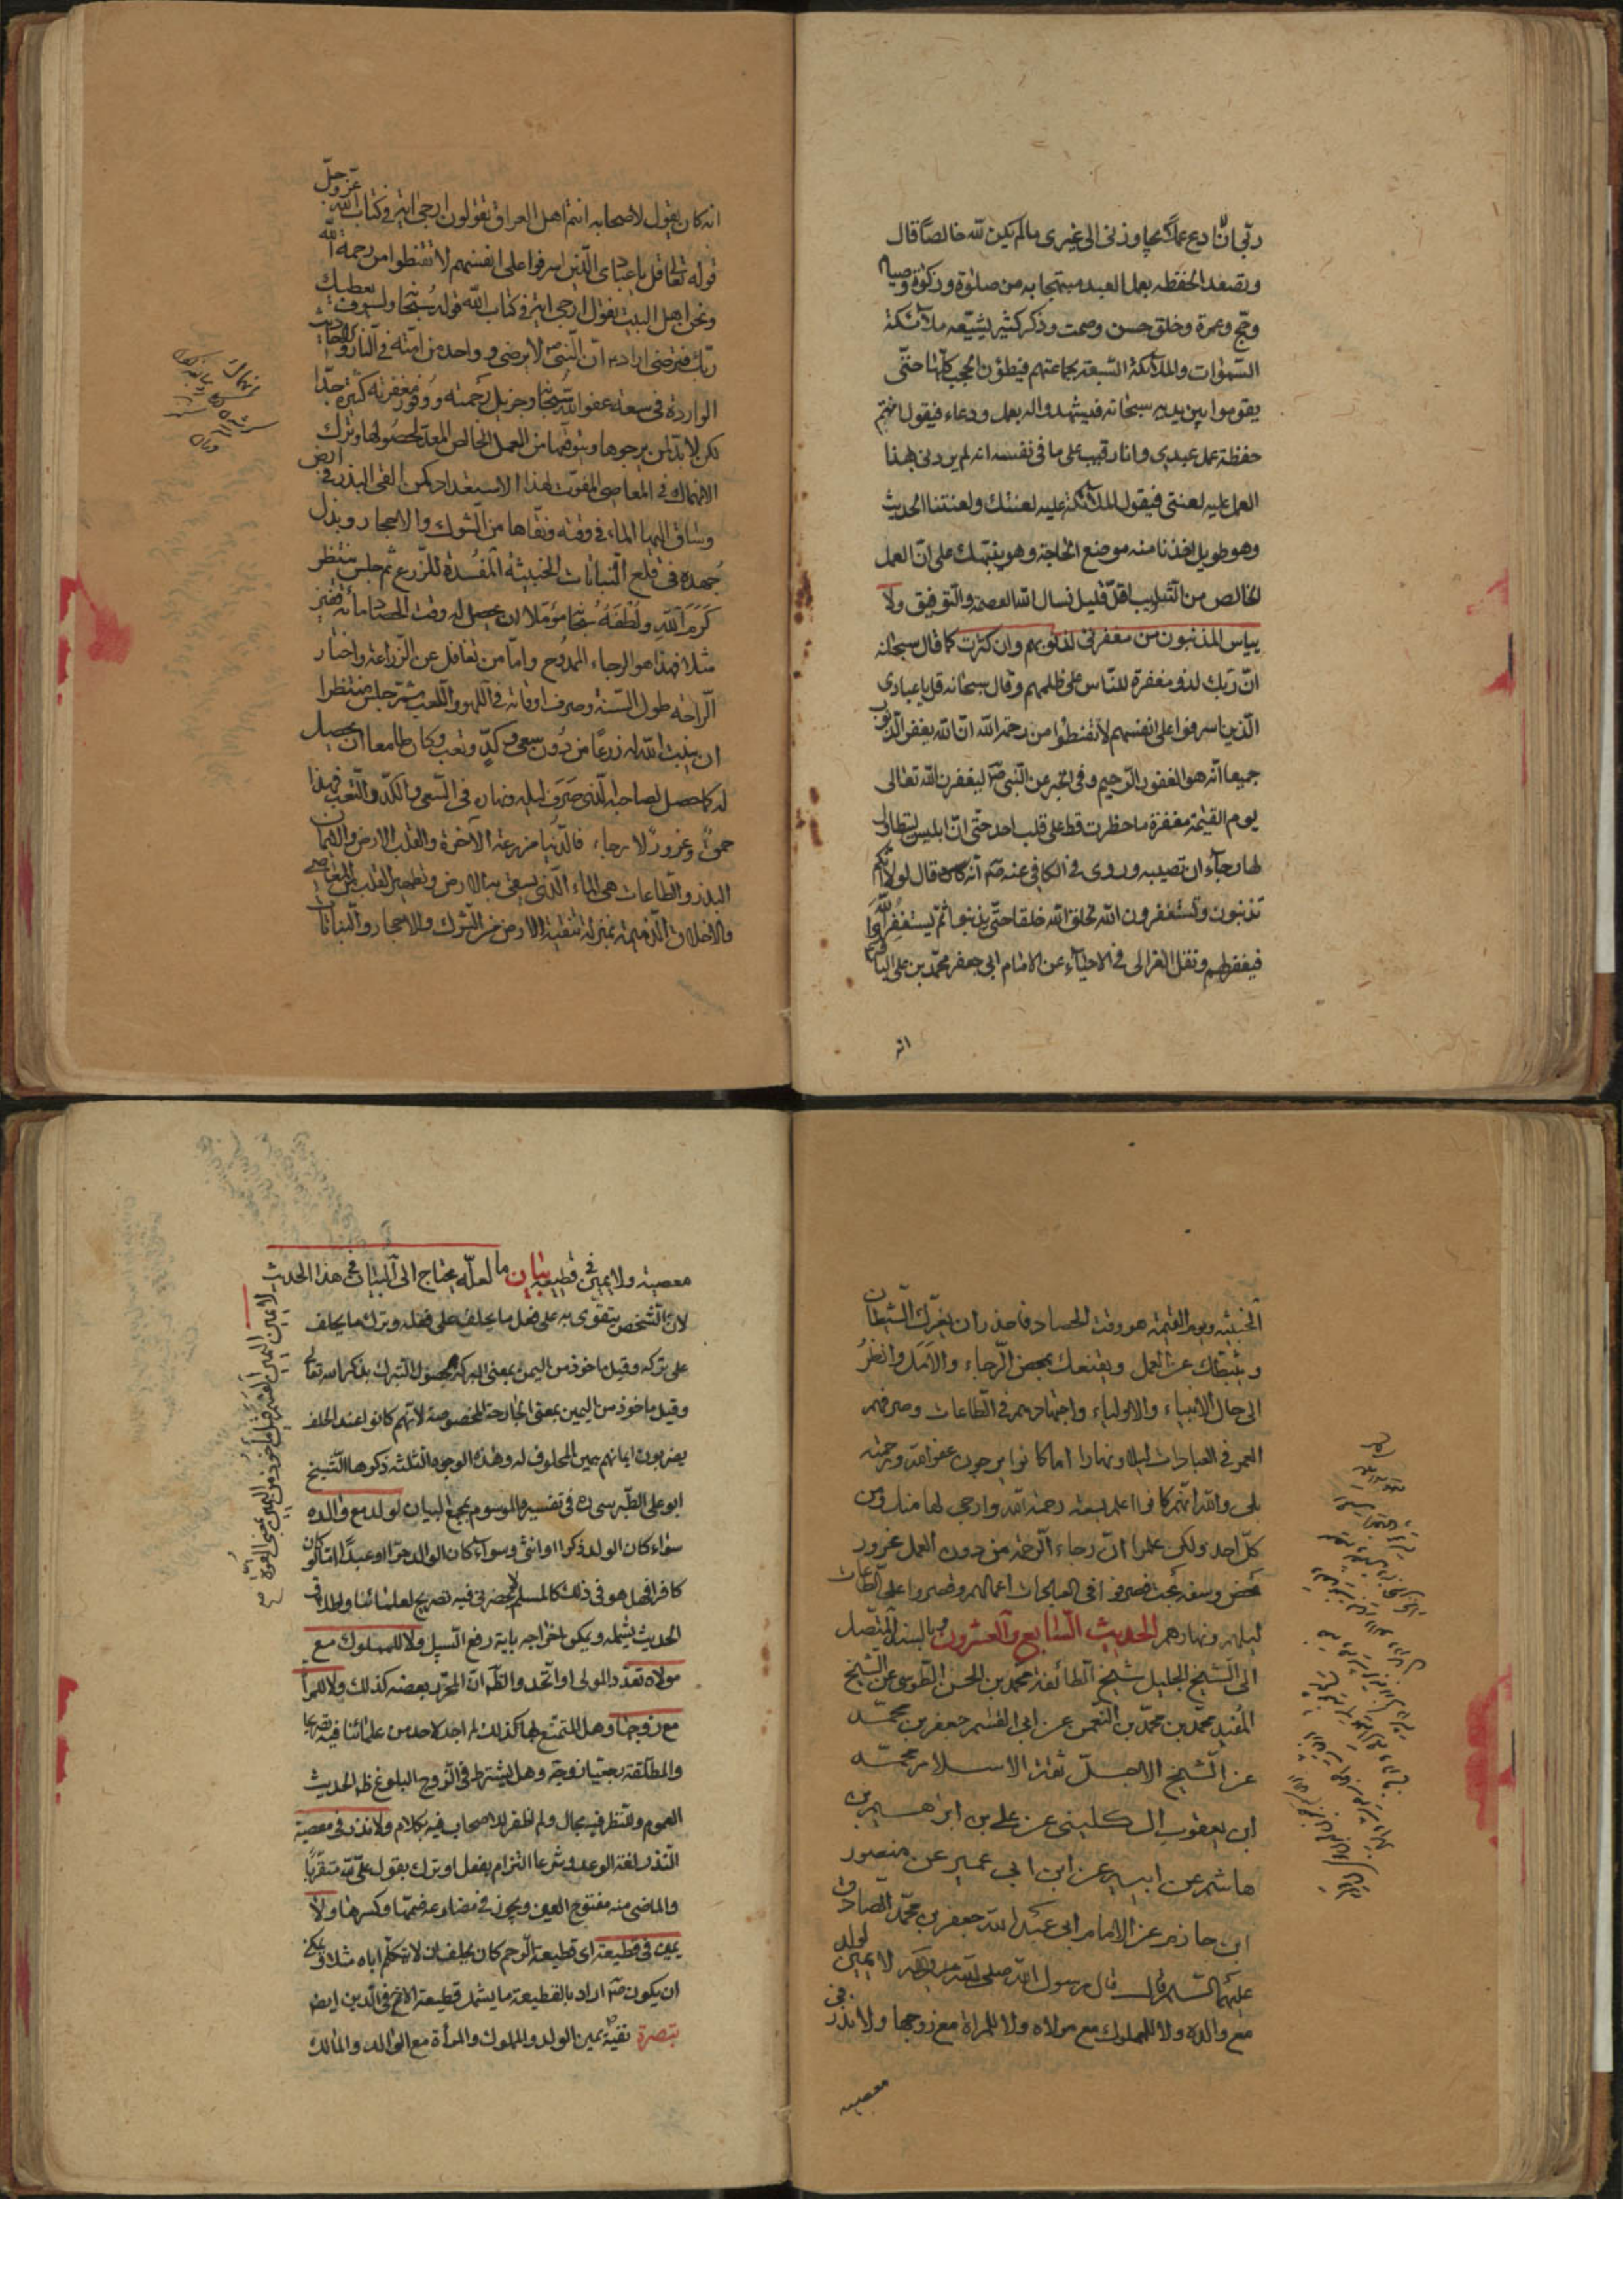 ربّي ان ادع عملك يجاوزني الى غيري ما لم يكن لله خالصا قال
وتصعد الحفظة بعمل العبد مبتهجا به من صلوة وزكوة وصيام
وحج وعمرة وخلق حسن وصمت وذكر كثير تشيّعه ملائكة
السّموات والملائكة السّبعة بجماعتهم فيطؤن الحجب كلّها حتّى
يقوموا بين يديه سبحانه فيشهدوا له بعمل ودعاء فيقول انتم
حفظة عمل عبدي وانا رقيب على ما في نفسه انه لم يردني بهذا
العمل عليه لعنتي فيقول الملائكة عليه لعنتك ولعنتنا الحديث
وهو طويل اخذنا منه موضع الحاجة وهو ينبّهك على انّ العمل
الخالص من الشوايب اقلّ قليل نسال الله العصمة والتوفيق ولا
ييأس المذنبون من مغفرتي لذنوبهم وان كثرت كما قال سبحانه
انّ ربّك لذو مغفرة للنّاس على ظلمهم وقال سبحانه قل يا عبادي
الّذين اسرفوا على انفسهم لا تقنطوا من رحمة الله انّ الله يغفر الذّنوب
جميعا انّه هو الغفور الرّحيم وفي الخبر عن النّبي ص ليغفرن الله تعالى
يوم القيمة مغفرة ما خطرت قط على قلب احد حتّى انّ ابليس ليتطاول
لها رجاء ان تصيبه وروي في الكافي عنه ص انّه قال لولا انّكم
تذنبون وتستغفرون الله لخلق الله خلقا حتّى يذنبوا ثمّ يستغفروا الله
فيغفر لهم ونقل الغزالي في الاحياء عن الامام ابي جعفر محمّد بن علي الباقر
انه
انه كان يقول لاصحابه انتم اهل العراق تقولون ارجى اية في كتاب الله عزّ وجلّ
قوله تعالى قل يا عبادي الّذين اسرفوا على انفسهم لا تقنطوا من رحمة الله
ونحن اهل البيت نقول ارجى اية في كتاب الله قوله سبحانه ولسوف يعطيك
ربّك فترضى اراد انّ النّبي ص لا يرضى وواحد من امّته في النّار والاحاديث
الواردة في سعة عفو الله سبحانه وجزيل رحمته ووفور مغفرته كثيرة جدّا
لكن لا بدّ لمن يرجوها ويتوقعها من العمل الخالص المعدّ لحصولها وترك
الانهماك في المعاصي المفوّت لهذا الاستعداد كمن القى البذر في ارض
وساق اليها الماء في وقته ونقّاها من الشوك والاحجار وبذل
جهده في قلع النّباتات الخبيثة المفسدة للزّرع ثمّ جلس ينتظر
كرم الله ولطفه سبحانه مؤمّلا ان يحصل له وقت الحصاد مائة قفيز
مثلا فهذا هو الرجاء الممدوح وامّا من تغافل عن الزّراعة واختار
الرّاحة طول السّنة وصرف اوقاته في اللّهو واللّعب ثمّ جلس منتظرا
ان ينبت الله له زرعا من دون سعي وكدّ وتعب وكان طامعا ان يحصل
له كما حصل لصاحبه الّذي صرف ليله ونهاره في السّعي والكدّ والتّعب فهذا
حمق وغرور لا رجاء فالدّنيا مزرعة الآخرة والقلب الارض والايمان
البذر والطّاعات هي الماء الّذي يسقى به الارض وتطهير القلب من المعاصي
والاخلاق الذّميمة بمنزلة تنقية الارض من الشوك والاحجار والنّباتات
الخبيثة ويوم القيمة هو وقت الحصاد فاحذر ان يغرّك الشّيطان
ويثبّطك عن العمل ويقنعك بمحض الرّجاء والامل وانظر
الى حال الانبياء والاولياء واجتهادهم في الطّاعات وصرفهم
العمر في العبادات ليلا ونهارا اما كانوا يرجون عفو الله ورحمته
بلى والله انّهم كانوا اعلم بسعة رحمة الله وارجى لها منك ومن
كلّ احد ولكن علموا انّ رجاء الرّحمة من دون العمل غرور
محض وسفه بحت فصرفوا في العبادات اعمارهم وقصروا على الطّاعات
ليلهم ونهارهم الحديث السّابع والعشرون وبالسند المتّصل
الى الشّيخ الجليل شيخ الطّائفة محمّد بن الحسن الطّوسي عن الشّيخ
المفيد محمّد بن محمّد بن النّعمن عن ابي القسم جعفر بن محمّد
عن الشّيخ الاجلّ ثقة الاسلام محمّد
ابن يعقوب الكليني عن علي بن ابراهيم بن
هاشم عن ابيه عن ابن ابي عمير عن منصور
ابن حازم عن الامام ابي عبد الله جعفر بن محمّد الصّادق
عليهما السّلم قال قال رسول الله صلى الله عليه واله لا يمين لولد
مع والده ولا للمملوك مع مولاه ولا للمراة مع زوجها ولا نذر في
معصية
معصية ولا يمين في قطيعة بيان ما لعلّه يحتاج الى البيان في هذا الحديث لا يمين
لانّ الشّخص يتقوّى به على فعل ما يحلف على فعله وترك ما يحلف
على تركه وقيل ماخوذ من اليمن بمعنى البركة لحصول التبرك بذكر اسم الله تعالى
وقيل ماخوذ من اليمين بمعنى الجارحة المخصوصة لانّهم كانوا عند الحلف
يضربون ايمانهم بيمين المحلوف له وهذه الوجوه الثلثة ذكرها الشيخ
ابو علي الطّبرسي ره في تفسيره الموسوم بمجمع البيان لولد مع والده
سواء كان الولد ذكرا او انثى وسواء كان الوالد حرّا او عبدا امّا لو كان
كافرا فهل هو في ذلك كالمسلم لا يحضرني فيه تصريح لعلمائنا واطلاق
الحديث يشمله ويمكن اخراجه باية رفع السّبيل ولا للمملوك مع
مولاه تعدّد المولى او اتّحد والظّ انّ المحرّر بعضه كذلك ولا للمرأة
مع زوجها وهل المتمتع بها كذلك لم اجد لاحد من علمائنا فيه تصريحا
والمطلّقة رجعيّا زوجة وهل يشترط في الزوج البلوغ ظ الحديث
العموم وللنّظر فيه مجال ولم اظفر للاصحاب فيه بكلام ولا نذر في معصية
النّذر لغة الوعد وشرعا التزام بفعل او ترك بقول علّي لله متقرّبا
والماضي منه مفتوح العين ويجوز في مضارعه ضمّها وكسرها ولا
يمين في قطيعة اي قطيعة الرّحم كان يحلف ان لا يكلّم اباه مثلا ويمكن
ان يكون ص اراد بالقطيعة ما يشمل قطيعة الاخ في الدين ايضا
تبصرة نفيه ص يمين الولد والمملوك والمرأة مع الوالد والمالك